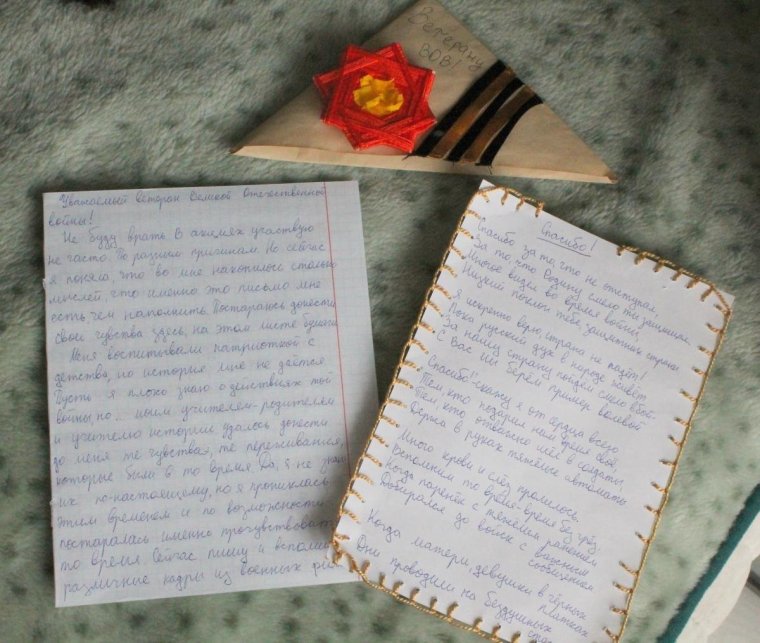 Ветерану
ВОВ!
Уважаемый ветеран Великой Отечественной
войны!
Не буду врать в акциях участвую
не часто. По разным причинам. Но сейчас
я поняла, что во мне накопилось столько
мыслей, что именно это письмо мне
есть чем наполнить. Постараюсь донести
свои чувства здесь, на этом листе бумаги
Меня воспитывали патриоткой с
детства, но история мне не даётся
Пусть я плохо знаю о действиях той
войны, но... моим учителям-родителям
и учителю истории, удалось донести
до меня те чувства, те переживания,
которые были в то время. Да, я не знаю
их по-настоящему, но я прониклась
этим временем и по возможности
постаралась именно прочувствовать
то время Сейчас пишу и вспоминаю
различные кадры из военных
Спасибо!
Спасибо за то, что не отступал,
За то, что Родину смело ты защищал.
Многое видел во время войны,
Низкий поклон тебе, защитник страны
Я искренно верю, страна не падёт!
Пока русский дух в народе живёт
За нашу страну пойдём смело в бой.
С Вас мы берём пример волевой
Спасибо!-скажу я от сердца всего
Тем кто подарил нам время своё,
Тем, кто отважно шёл в солдаты
Держа в руках тяжёлые автоматы
Много крови и слёз пролилось.
Вспомним то время-время без грёз
Когда паренёк с тяжёлым ранением
Добирался до войск с важным
сообщением
Когда матери, девушки в чёрных
платках
Они проводили на бездушных